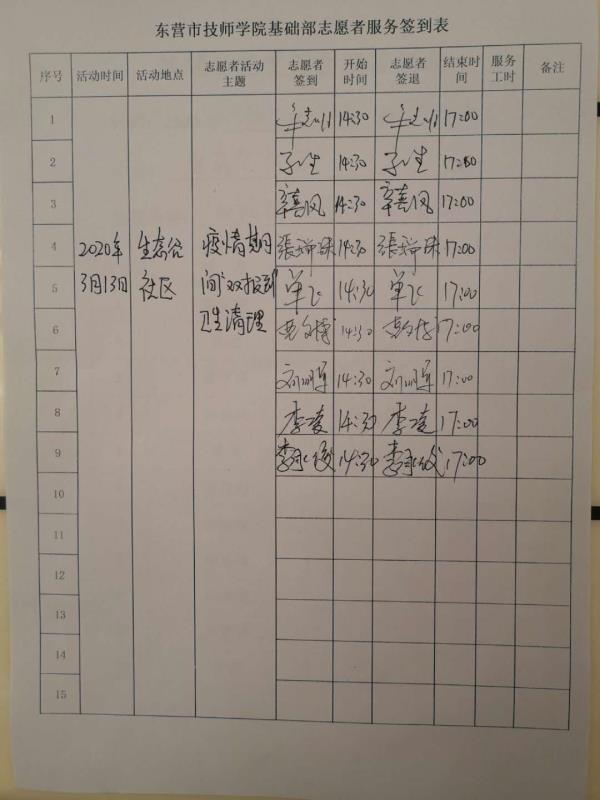 东营市技师学院基础部志愿者服务签到表
序号 活动时间 活动地点 志愿者活动主题 志愿者签到 开始时间 志愿者签退 结束时间 服务工时 备注
1 14:30 17:00
2 14:30 17:00
3 辛喜风 14:30 辛喜风 17:00
4 2020年 生态谷 疫情期 張瑞珠 14:30 張瑞珠 17:00
5 3月13日 社区 间“双报到” 单飞 14:30 单飞 17:00
6 卫生清理 14:30 17:00
7 刘明军 14:30 刘明军 17:00
8 李凌 14:30 李凌 17:00
9 14:30 17:00
10
11
12
13
14
15